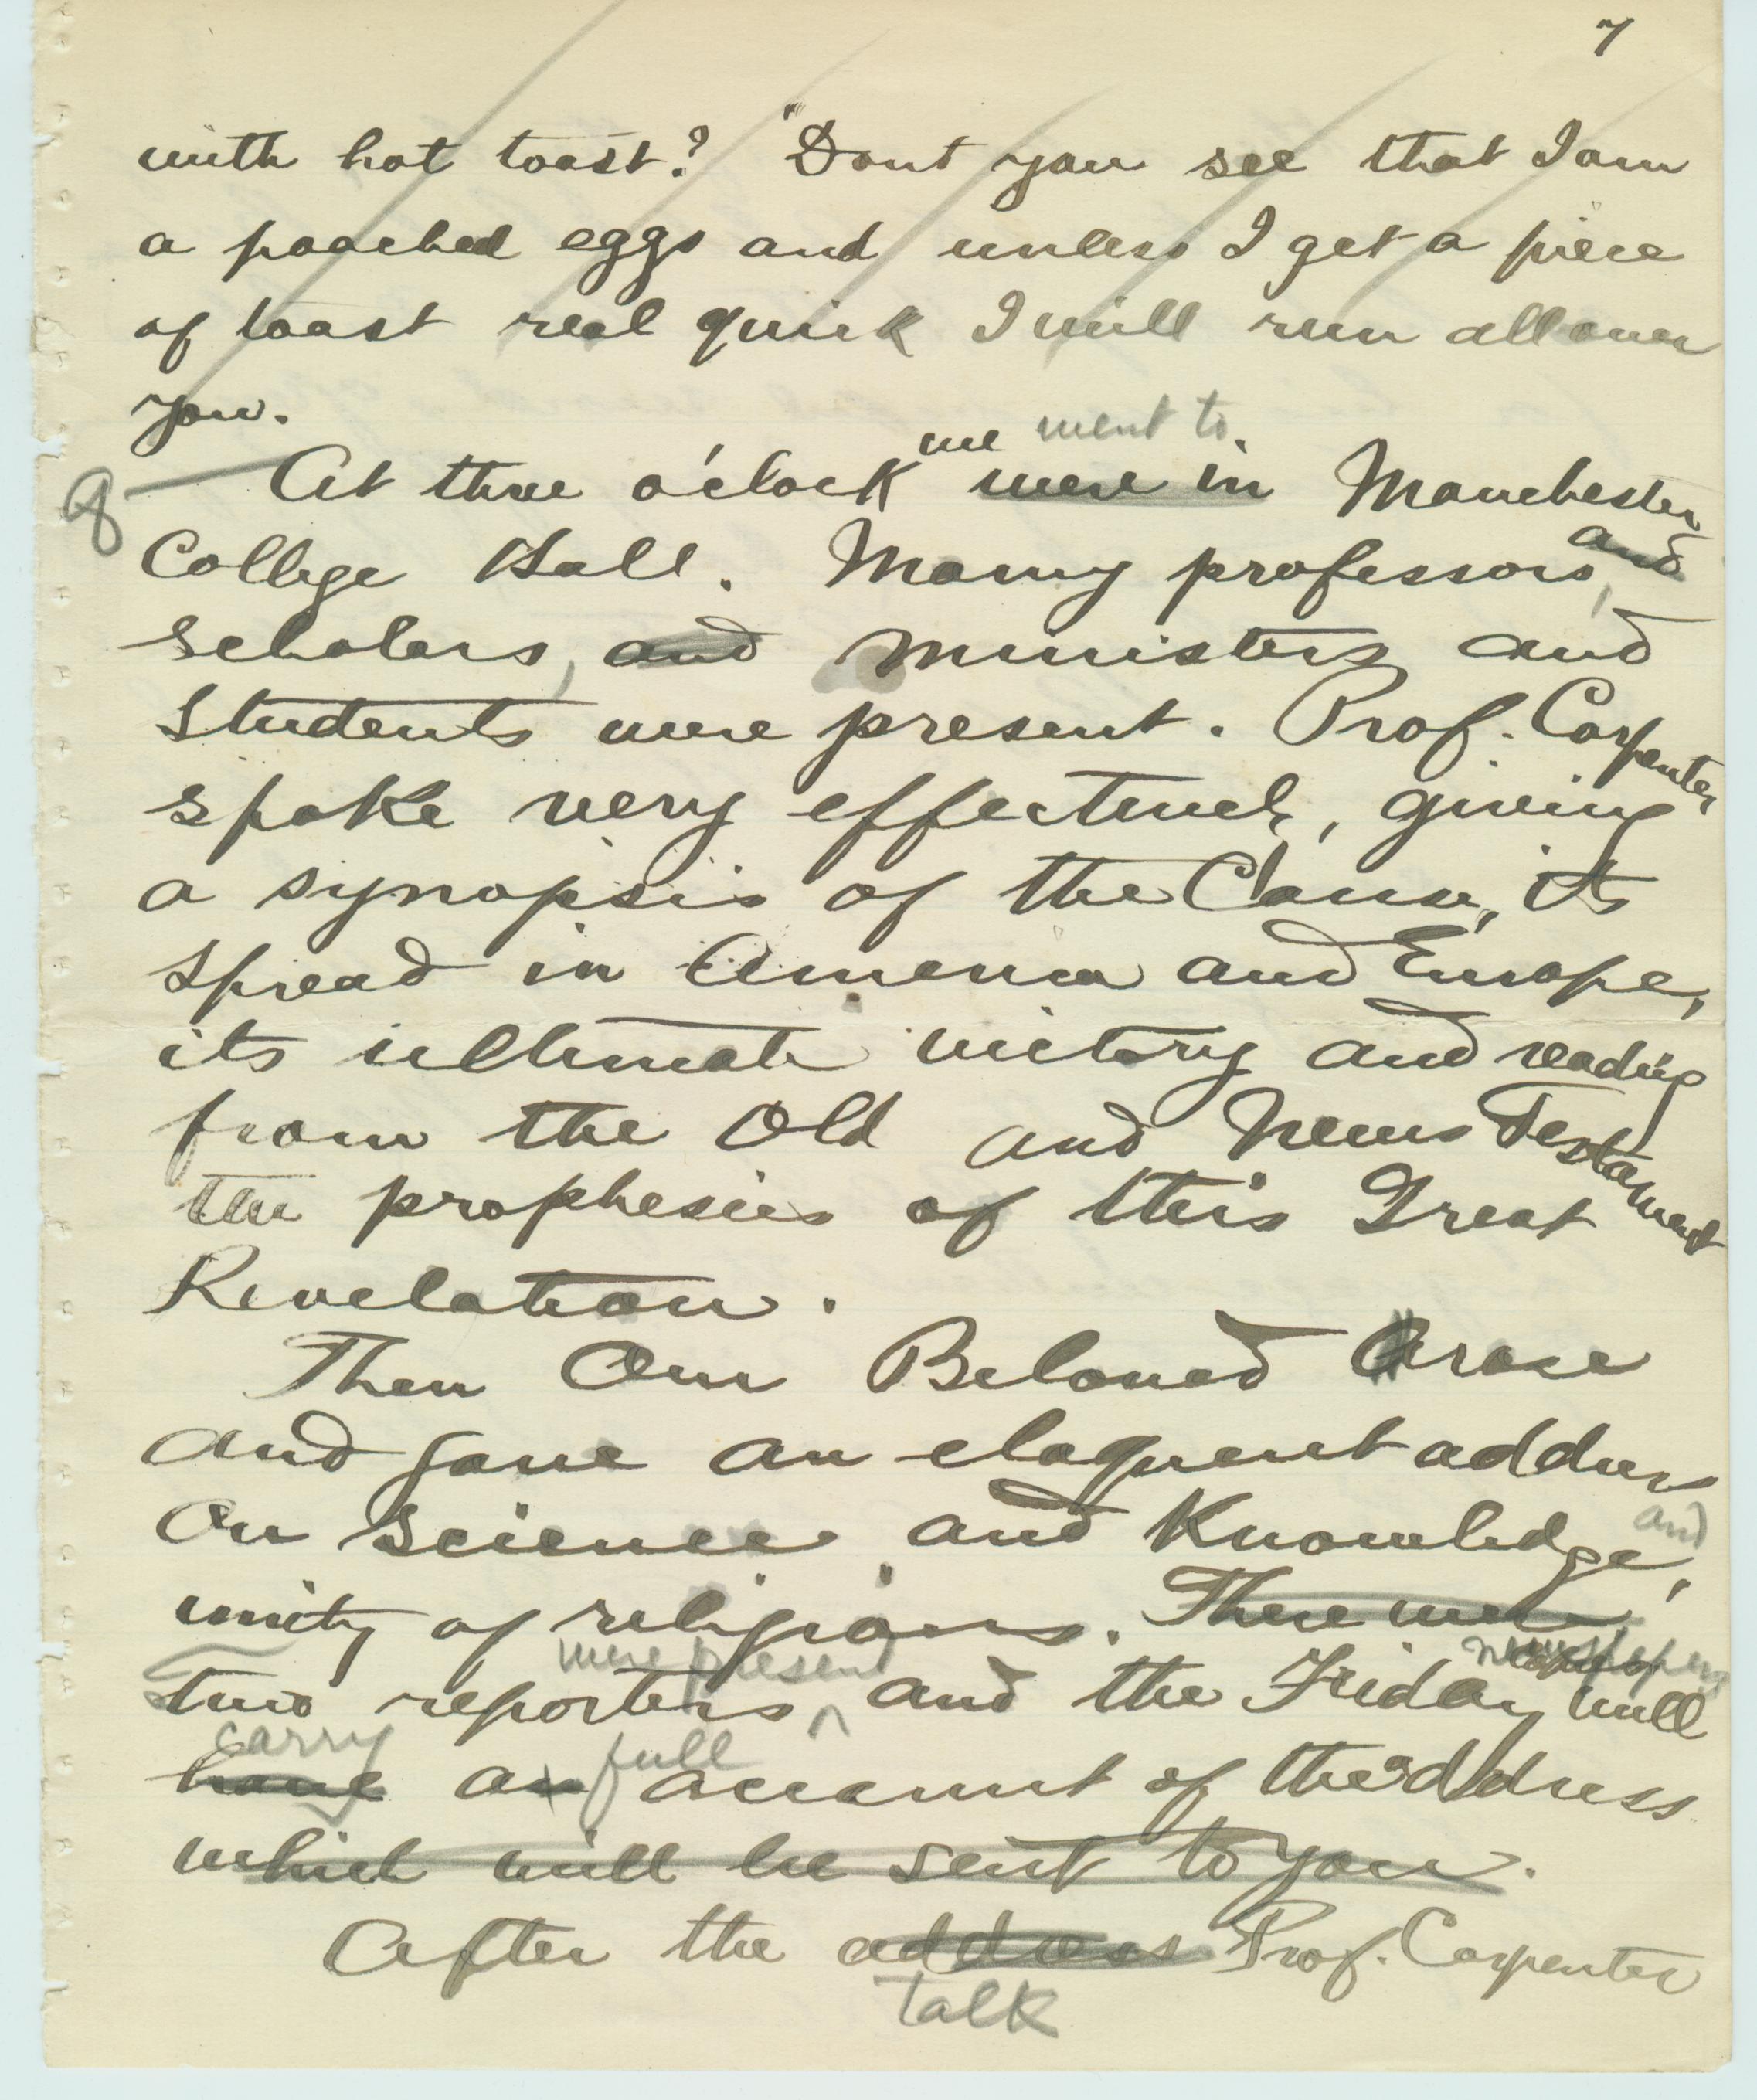 7
with hot toast? "Dont you see that I am
a poached eggs and unless I get a piece
of toast real quick I will run all over
you.
we went to
8 At three o'clock were in Manchester
and
College Hall. Many professors,
scholars, and ministers and
students were present. Prof. Carpenter
spoke very effectively, giving
a synopsis of the Cause, its
spread in America and Europe,
its ultimate victory and reading
from the Old and News Testament
the prophesies of this Great
Revelation.
Then Our Beloved Arose
and gave an eloquent address
and
On Science and Knowledge,
unity of religions. There were
were present newspapers
two reporters, and the Friday will
carry full
have an account of the address
which will be sent to you.
After the address Prof. Carpenter
talk